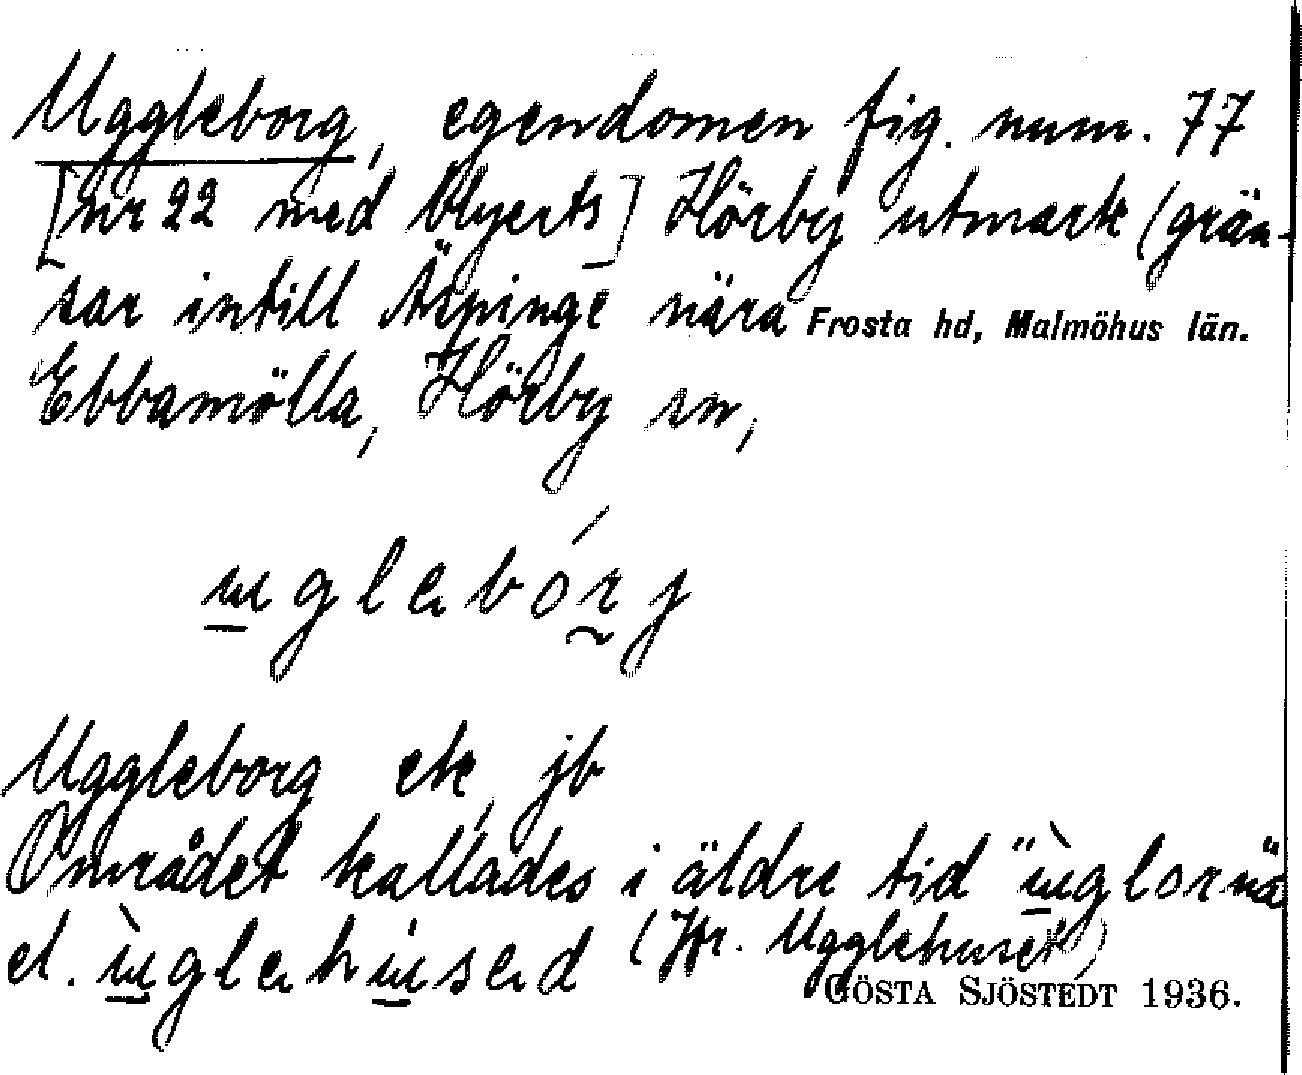 Uggleborg, egendomen fig. num. 77
[nr 22 med Olyerts] Hörby utmark (grän-
sar intill Äspinge nära Frosta hd, Malmöhus län.
Ebbamölla, Hörby sn,
uglebórj
Uggleborg ek, jb
Området kallades i äldre tid "ùglorna"
el. ùglehùsed (Jfr. Ugglehuset)
GÖSTA SJÖSTEDT 1936.